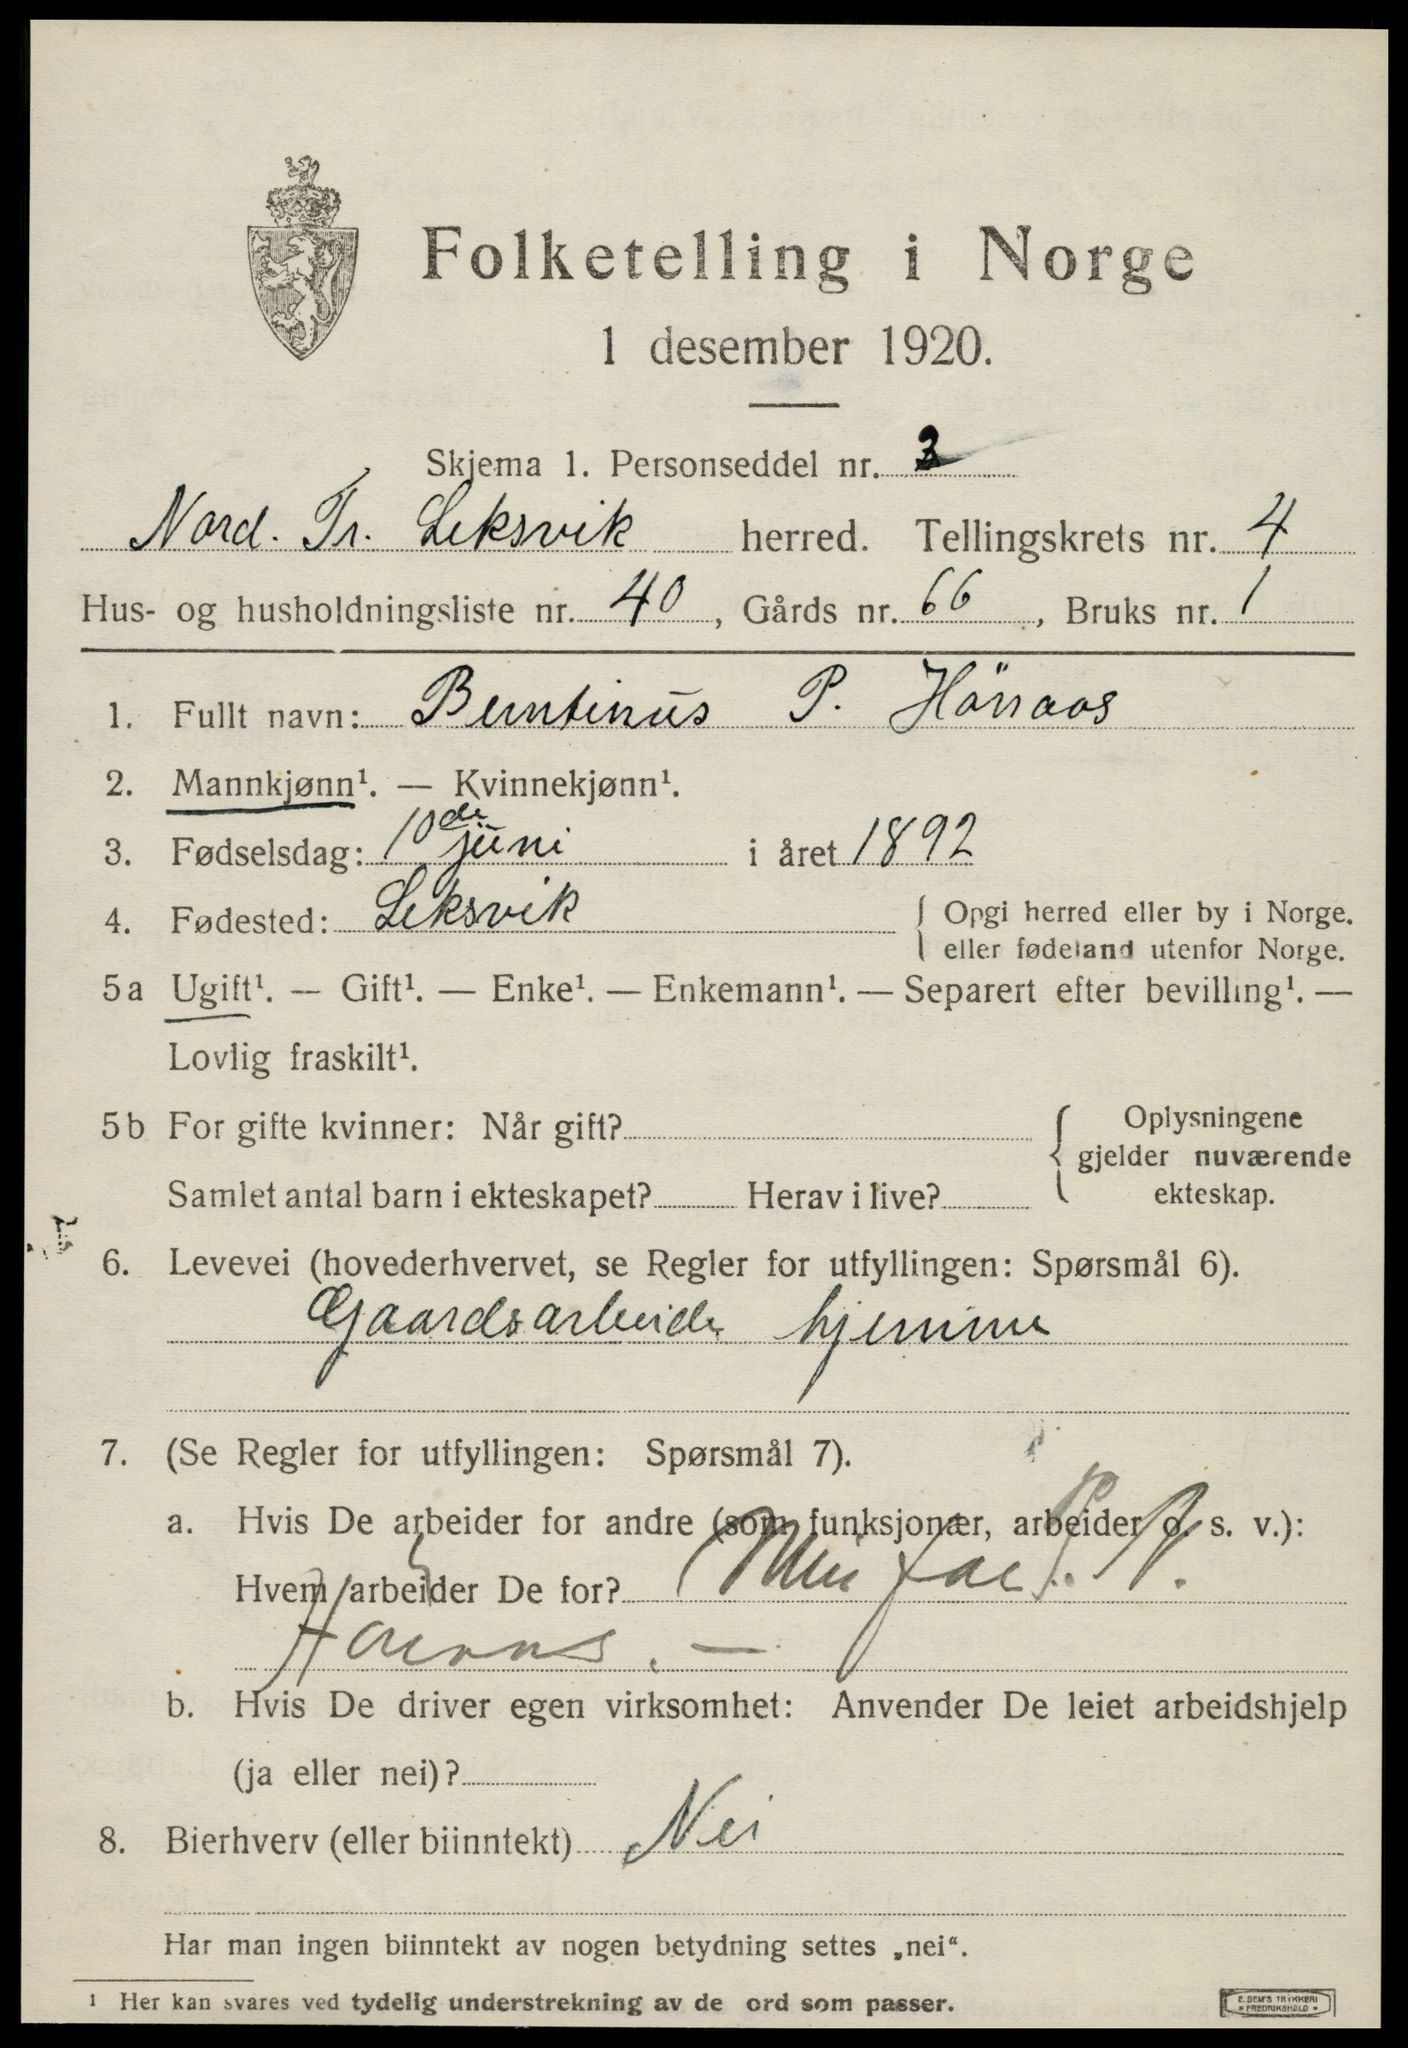 Folketelling i Norge
1 desember 1920.
Skjema 1. Personseddel nr. 3
Nord. Tr. Leksvik herred. Tellingskrets nr. 4
Hus- og husholdningsliste nr. 40, Gårds nr. 66, Bruks nr. 1
1. Fullt navn: Berntinus P. Hörraas
2. Mannkjønn¹. — Kvinnekjønn¹.
3. Fødselsdag: 10de juni i året 1892
4. Fødested: Leksvik { Opgi herred eller by i Norge.
eller fødeland utenfor Norge.
5a Ugift¹. — Gift¹. — Enke¹. — Enkemann¹. — Separert efter bevilling¹. —
Lovlig fraskilt¹.
5b For gifte kvinner: Når gift? { Oplysningene
gjelder nuværende
Samlet antal barn i ekteskapet? Herav i live? ekteskap.
6. Levevei (hovederhvervet, se Regler for utfyllingen: Spørsmål 6).
Gaardsarbeide hjemme
7. (Se Regler for utfyllingen: Spørsmål 7).
a. Hvis De arbeider for andre (som funksjonær, arbeider o. s. v.):
Hvem arbeider De for? (Min far P. N.
b. Hvis De driver egen virksomhet: Anvender De leiet arbeidshjelp
(ja eller nei)?
8. Bierhverv (eller biinntekt) Nei
Har man ingen biinntekt av nogen betydning settes „nei“.
¹ Her kan svares ved tydelig understrekning av de ord som passer.
E. SEM'S TRYKKERI
* FREDRIKSHALD *